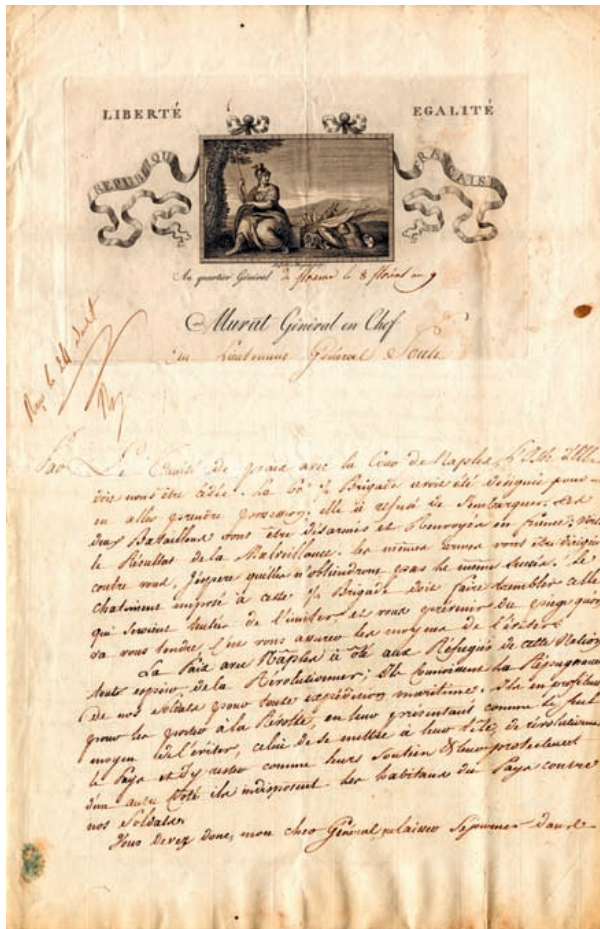 LIBERTÉ
EGALITÉ
REPUBLIQUE
FRANÇAISE
Au quartier Général de florence le 8 floréal an 9
Murat Général en Chef
au Lieutenant Général Soult
le 24
Par Le Traité de paix avec la Cour de Naples, L'Isle d'Elbe
doit nous être cédée. La 60e ½ Brigade avoit été désignée pour
en aller prendre possession. elle a refusé de s'embarquer.
deux Bataillons vont être désarmés et Renvoyés en france; voici
le Résultat de la Malveillance. les mêmes armes vont être dirigées
contre vous. J'espère qu'elles n'obtiendront pas le même succès. Le
chatiment imposé à cette ½ Brigade doit faire trembler celles
qui seroient tentées de l'imiter. et vous prévenir du piege qu'on
va vous tendre, c'est vous assurer les moyens de l'éviter.
La Paix avec Naples a ôté aux Réfugiés de cette Nation
tout espoir de la Révolutionner; Ils connoissent la Répugnance
de nos soldats pour toute expédition maritime. Ils en profitent
pour les porter à la Révolte, en leur présentant comme le seul
moyen de l'éviter, celui de se mettre à leur tête, de révolutionner
le Pays et d'y rester comme leurs soutien & leurs protecteurs
d'un autre Côté ils indisposent les habitans du Pays contre
nos Soldats.
Vous devez donc, mon cher Général, laisser séjourner dans le